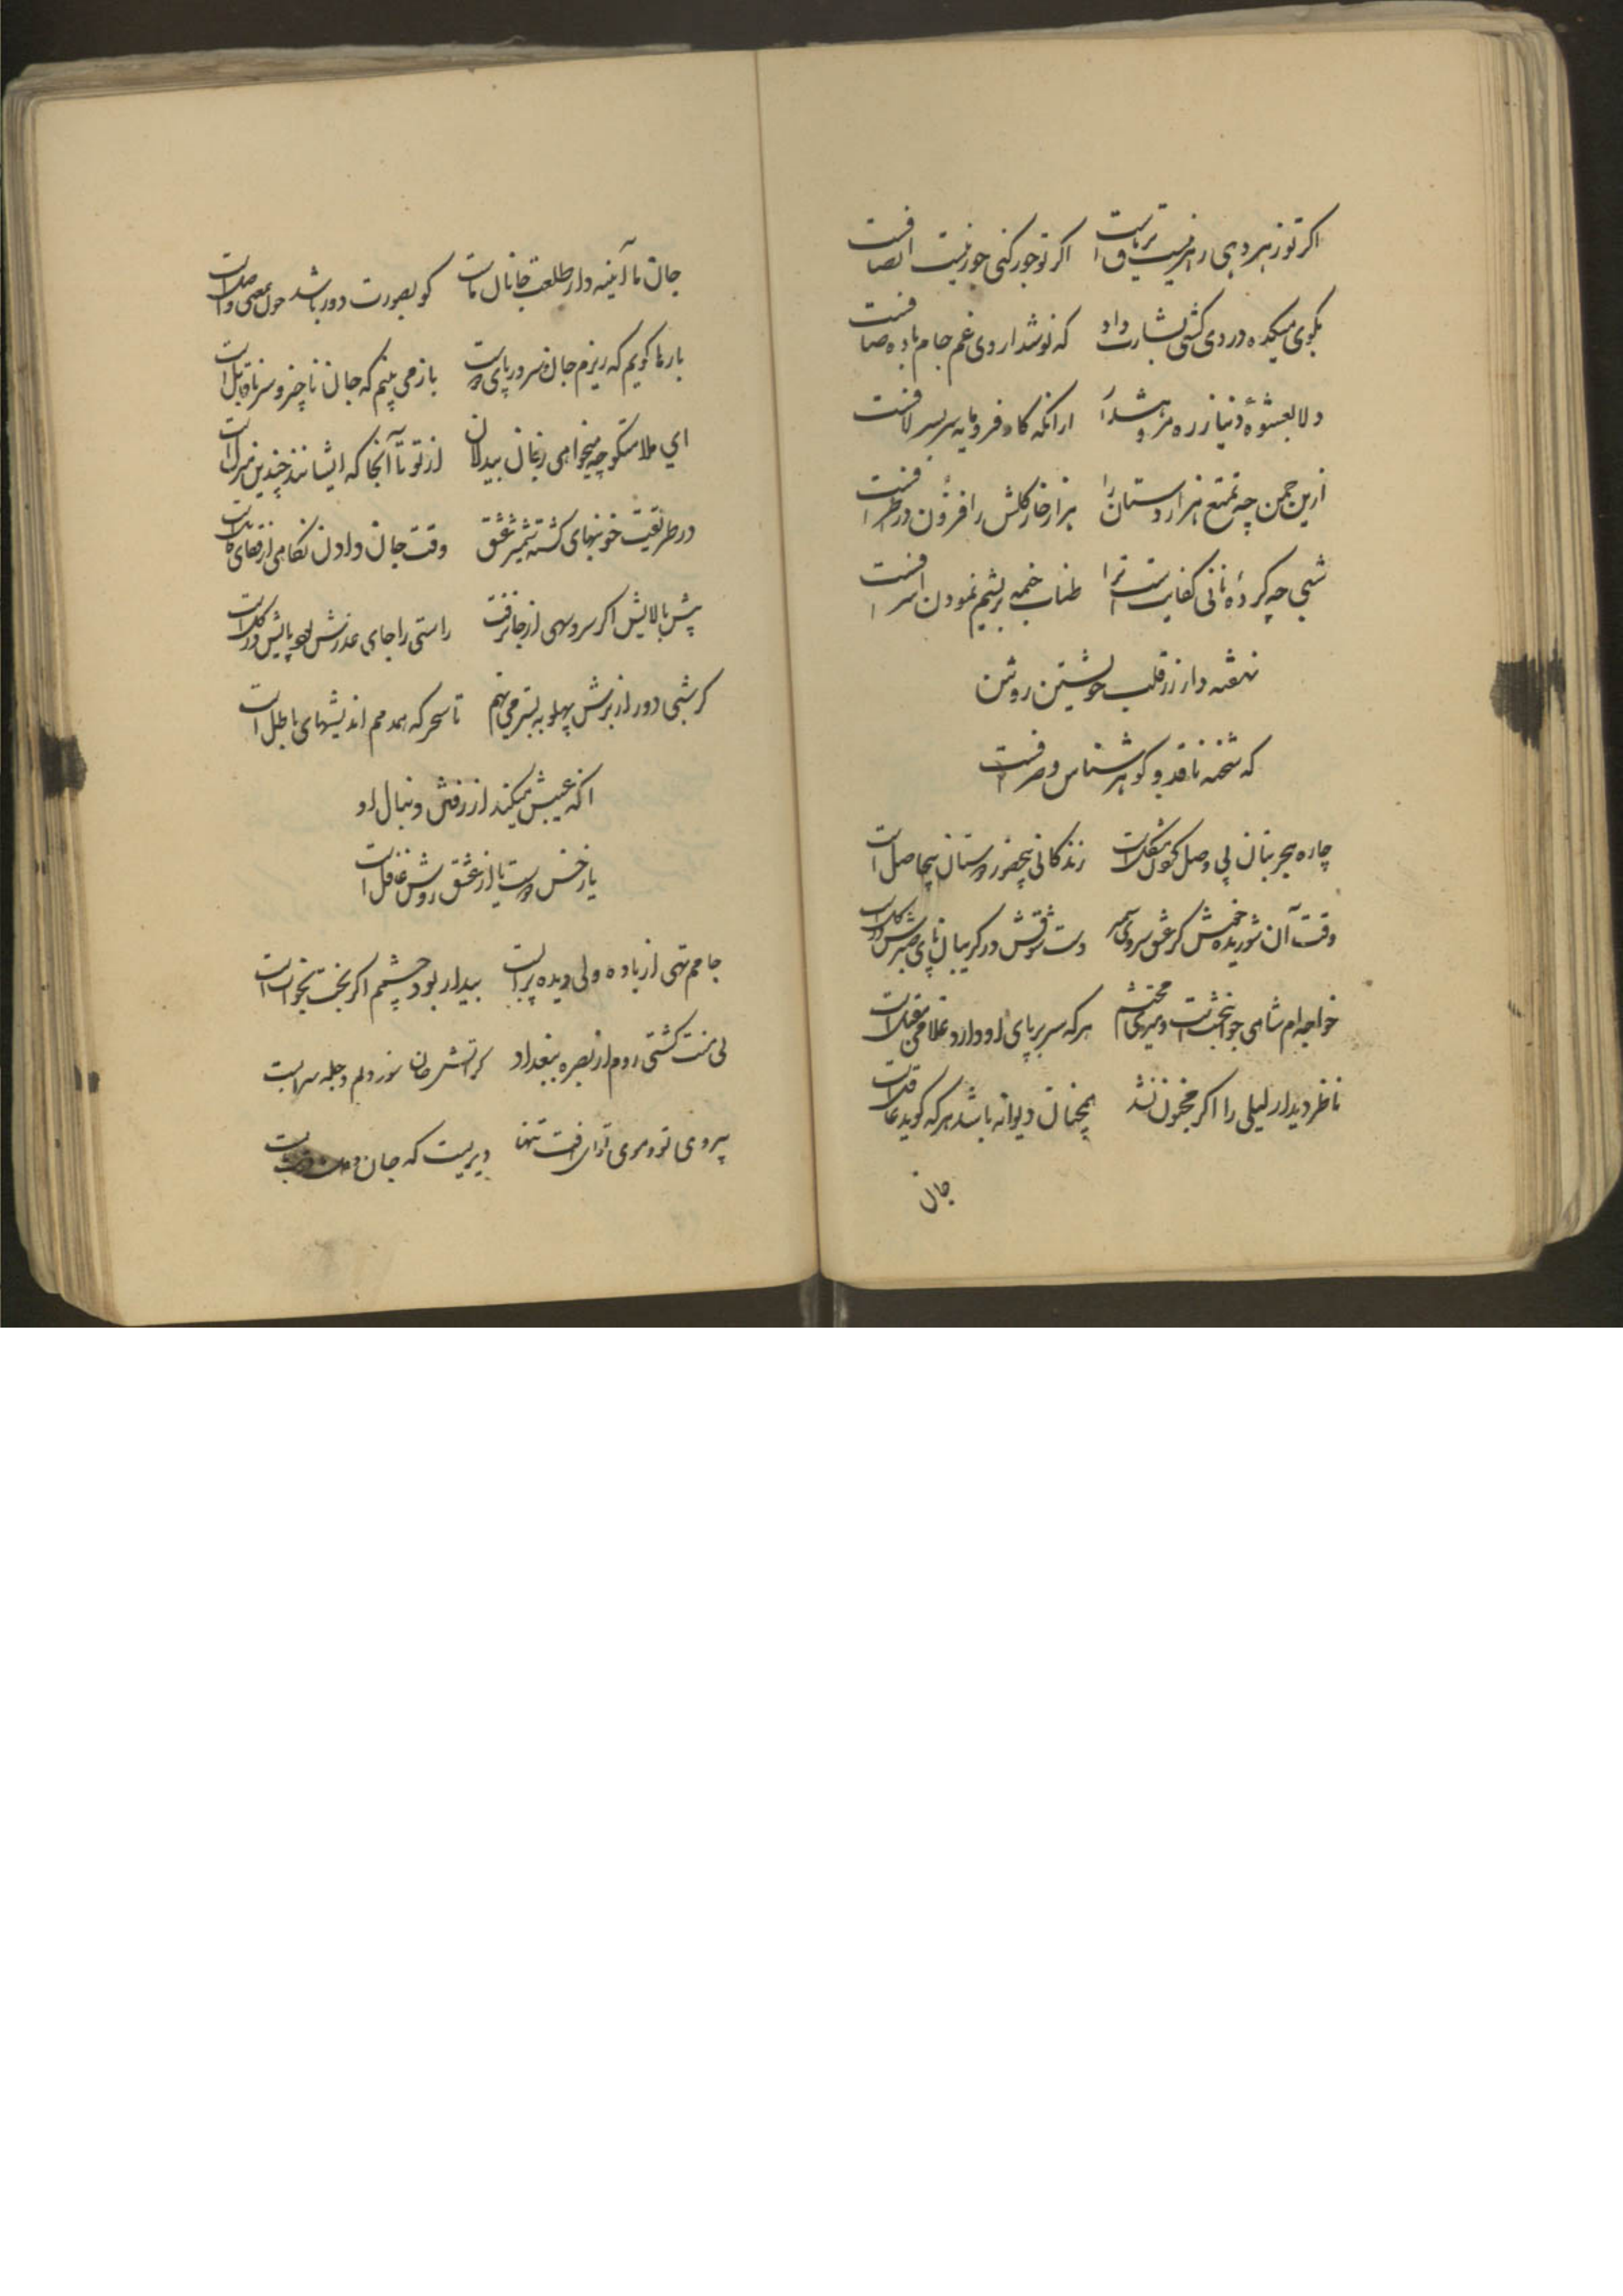 اکر تو زهر دهی زهر نیست تریاقست اکر تو جور کنی جور نیست انصافست
بکوی میکده دردی کشی بشارت داد که نوشداروی غم جام باده صافست
دلا بعشوهٔ دنیا ز ره مرو
ازین چمن چه تمتع هزاردستان را هزار خار کلش را فزون در اطرافست
شبی چه کردهٔ نانی کفایتست ترا طناب خیمه بریشم نمودن اسرافست
نهفته دار زر قلب خویشتن روشن
که شحنه ناقد و کوهرشناس و صرافست
چاره هجر بتان بی وصل کویان مشکلست زندکانی بیحضور دوستان بیحاصل است
وقت آن شوریده خوش کز عشق سرو دست شوقش در کریبان پای صبرش در کلست
خواجه‌ام شاهی جوانبختست و میری محتشم هرکه سر بر پای او دارد غلامی مقبلست
ناظر دیدار لیلی را اکر مجنون نشد همچنان دیوانه باشد هرکه کوید عاقلست
جان
جان ما آئینه‌دار طلعت جانان ماست کو بصورت دور باشد چون بمعنی واصلست
بارها کویم که ریزم جان و سر در پای دوست باز می بینم که جان ناچیز و سر ناقابل است
ای ملامتکو چه میخواهی ز جان بیدلان از تو تا آنجا که ایشانند چندین منزلست
در طریقت خونبهای کشته شمشیر عشق وقت جان دادن نکاهی از قفای قاتلست
پیش بالایش اکر سرو سهی از جا نرفت راستی را جای عذرش کو که پایش در کلست
کر شبی دور از برش پهلو به بستر می نهم تا سحر که همدمم اندیشهای باطل است
آنکه عیبش میکند از رفتن دنبال او
یا رخش دوست یا از عشق روشن غافل است
جامم تهی از باده ولی دیده پرابست بیدار بود چشمم اکر بخت بخوابست
بی منت کشتی روم از بصره ببغداد کز آتش جان سوز دلم دجله سرابست
دیریست که جان